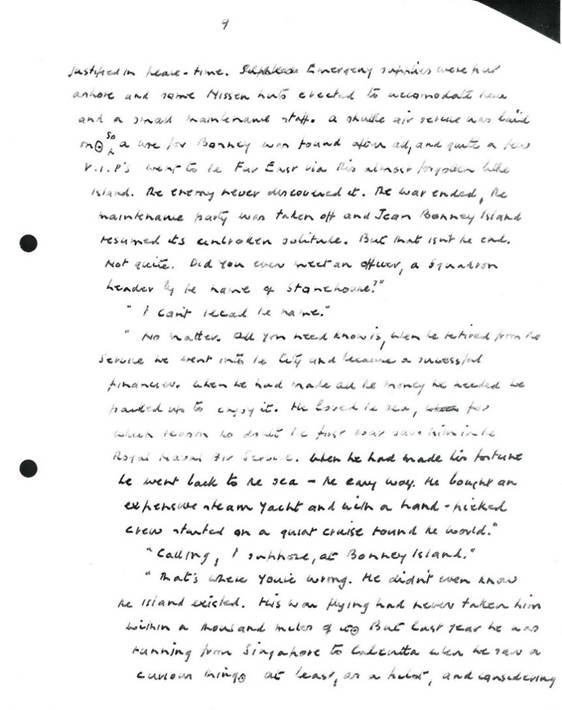 9
justified in peace-time. Emergency supplies were put
ashore and some Nissen huts erected to accomodate them
and a small maintenance staff. A shuttle air service was laid
on so a use for Bonney was found after all, and quite a few
V.I.P's went to the Far East via this almost forgotten little
island. The enemy never discovered it. The war ended, the
maintenance party was taken off and Jean Bonney Island
resumed its unbroken solitude. But that isn't the end.
Not quite. Did you ever meet an officer, a Squadron
Leader by the name of Stonehouse?"
"I can't recall the name."
"No matter. All you need know is, when he retired from the
Service he went into the City and became a successful
financier. When he had made all the money he needed he
packed up to enjoy it. He loved the sea, for
which reason no doubt the first war saw him in the
Royal Naval Air Service. When he had made his fortune
he went back to the sea – the easy way. He bought an
expensive steam yacht and with a hand-picked
crew started on a quiet cruise round the world."
"Calling, I suppose, at Bonney Island."
"That's where you're wrong. He didn't even know
the island existed. His war flying had never taken him
within a thousand miles of it. But last year he was
running from Singapore to Calcutta when he saw a
curious thing at least, as a pilot, and considering